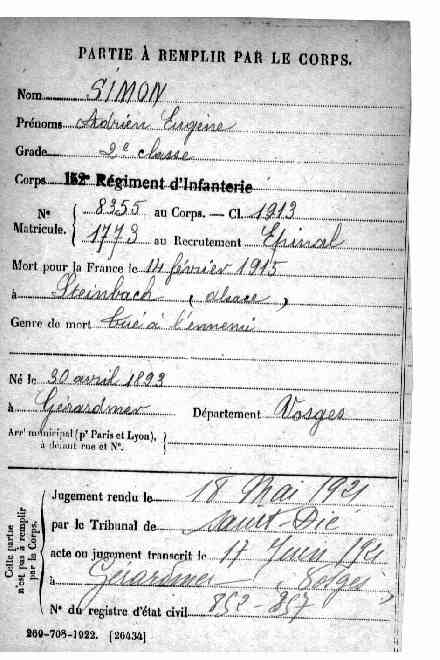 PARTIE À REMPLIR PAR LE CORPS.
Nom SIMON
Prénoms Adrien Eugène
Grade 2e classe
Corps 152e Régiment d'Infanterie
N° Matricule. { 8355 au Corps. — Cl. 1913
1773 au Recrutement Epinal
Mort pour la France le 14 février 1915
à Steinbach (alsace)
Genre de mort tué à l'ennemi
Né le 30 avril 1893
à Gérardmer Département Vosges
Arrt municipal (pr Paris et Lyon), à défaut rue et N°. }
Cette partie n'est pas à remplir par le Corps.
Jugement rendu le 18 Mai 1921
par le Tribunal de Saint-Dié
acte ou jugement transcrit le 17 Juin 1921
à Gérardmer (Vosges)
N° du registre d'état civil 852-857
269-708-1922. [26434]